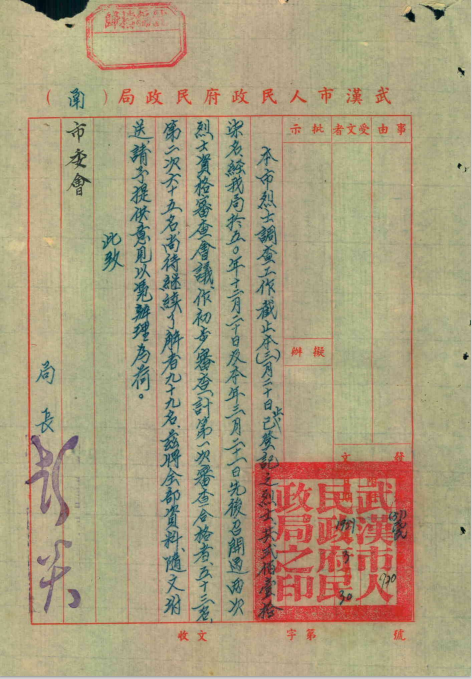 武漢市人民政府民政局（函）
事由
受文者
批示
擬辦
發文
本市烈士調查工作截止本(三)月二十日止已登記之烈士共貳佰壹拾
柒名經我局於五〇年十二月二十日及本年三月二十一日先後召開過兩次
烈士資格審查會議作初步審查計第一次審查合格者五十三名
第二次六十五名尚待繼續了解者九十九名茲將全部資料隨文附
送請予提供意見以憑辦理為荷。
此致
市委會
局長
武漢市人
民政府民
政局之印
收文 字第 號